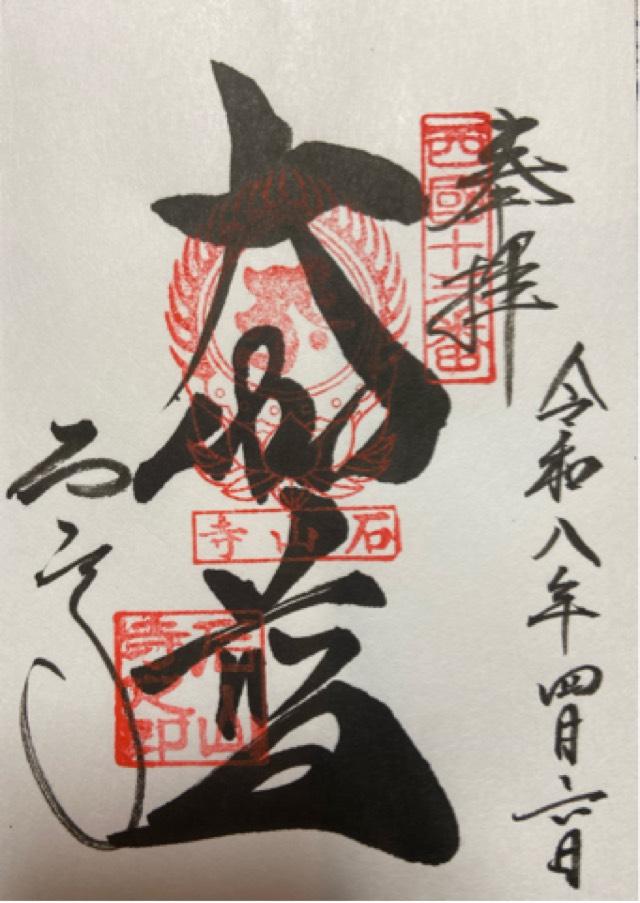 奉拝
西國十三番
令和八年四月六日
大伽藍
石山寺
石山寺之印
石山寺